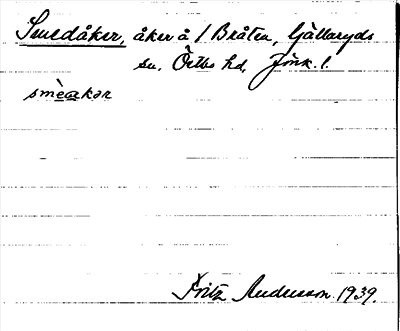 Smedåker, åker å 1 Bråten, Gällaryds
sn. Östbo hd, Jönk. l.
smèakar
Fritz Andersson 1939.